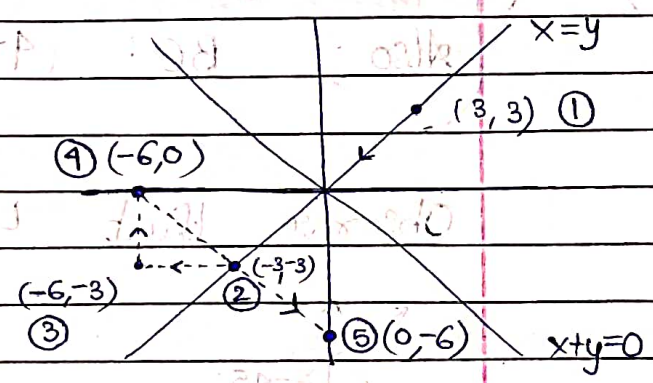 x=y
(3,3) ①
④ (-6,0)
(-3,-3)
(-6,-3)
②
③
⑤ (0,-6)
x+y=0